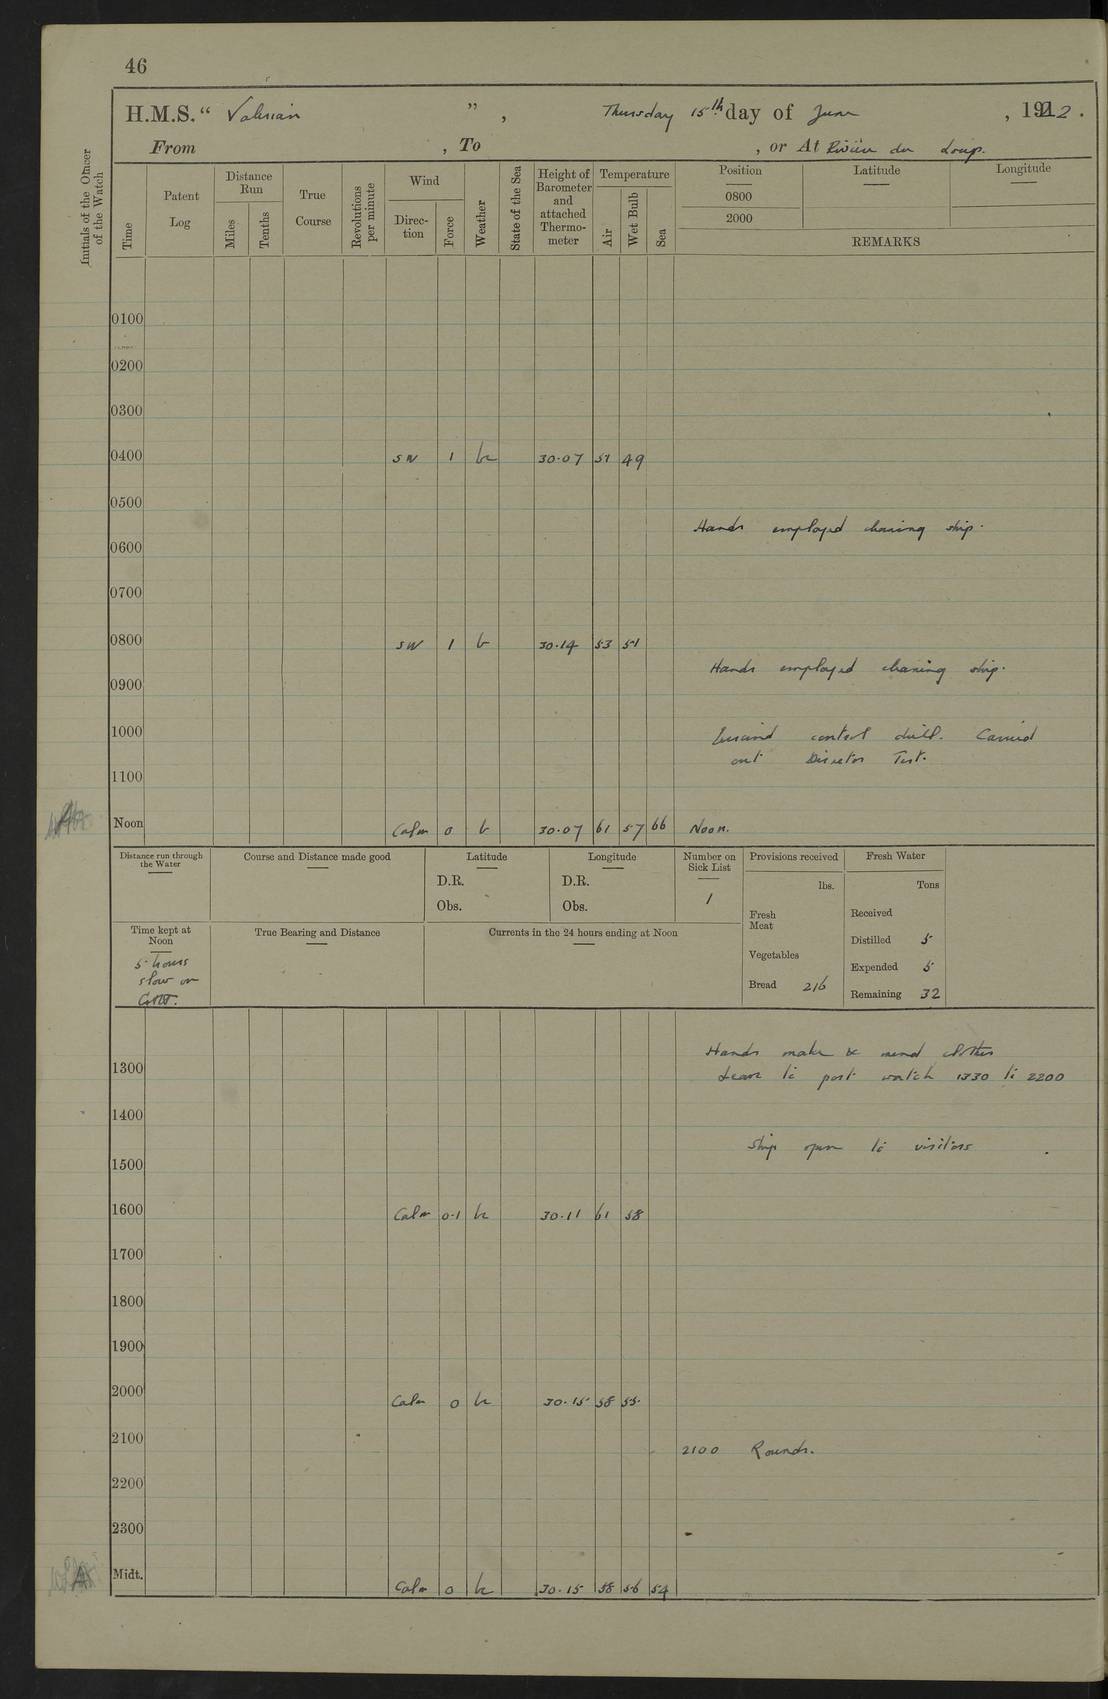 46
H.M.S. “ Valerian ” , Thursday 15th day of June , 1922 .
From , To , or At Rivière du Loup.
Initials of the Officer of the Watch
Time
Patent Log
Distance Run
Miles
Tenths
True Course
Revolutions per minute
Wind
Direc-tion
Force
Weather
State of the Sea
Height of Barometer and attached Thermo-meter
Temperature
Air
Wet Bulb
Sea
Position Latitude Longitude
0800
2000
REMARKS
0100
0200
0300
0400 SW 1 bc 30.07 51 49
0500
Hands employed cleaning ship.
0600
0700
0800 SW 1 b 30.14 53 51
Hands employed cleaning ship.
0900
1000 control drill. Carried
out Director Test.
1100
Noon Calm 0 b 30.07 61 57 66 Noon.
Distance run through the Water
Course and Distance made good
Latitude
D.R.
Obs.
Longitude
D.R.
Obs.
Number on Sick List
1
Provisions received
lbs.
Fresh Meat
Vegetables
Bread 216
Fresh Water
Tons
Received
Distilled 5
Expended 5
Remaining 32
Time kept at Noon
5 hours
slow on
G.M.T.
True Bearing and Distance
Currents in the 24 hours ending at Noon
Hands make & mend clothes
1300 Leave to port watch 1330 to 2200
1400
Ship open to visitors
1500
1600 Calm 0-1 bc 30.11 61 58
1700
1800
1900
2000 Calm 0 bc 30.15 58 55
2100 2100 Rounds.
2200
2300
Midt. Calm 0 bc 30.15 58 56 54